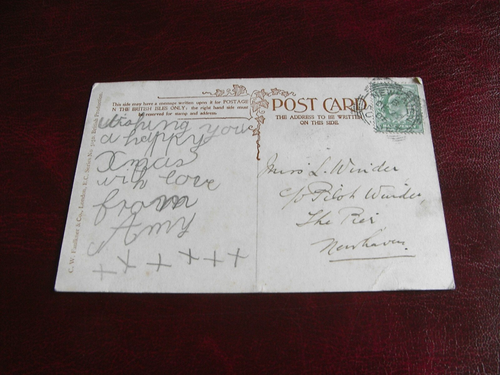 This side may have a message written upon it for POSTAGE
IN THE BRITISH ISLES ONLY; the right hand side must
be reserved for stamp and address.
POST CARD
THE ADDRESS TO BE WRITTEN
ON THIS SIDE.
wishing you
a happy
Xmas
with love
from
Amy
x x x x x x
Miss L. Winder
c/o Pilot Winder
The Pier
Newhaven
C. W. Faulkner & Co., London, E.C. Series